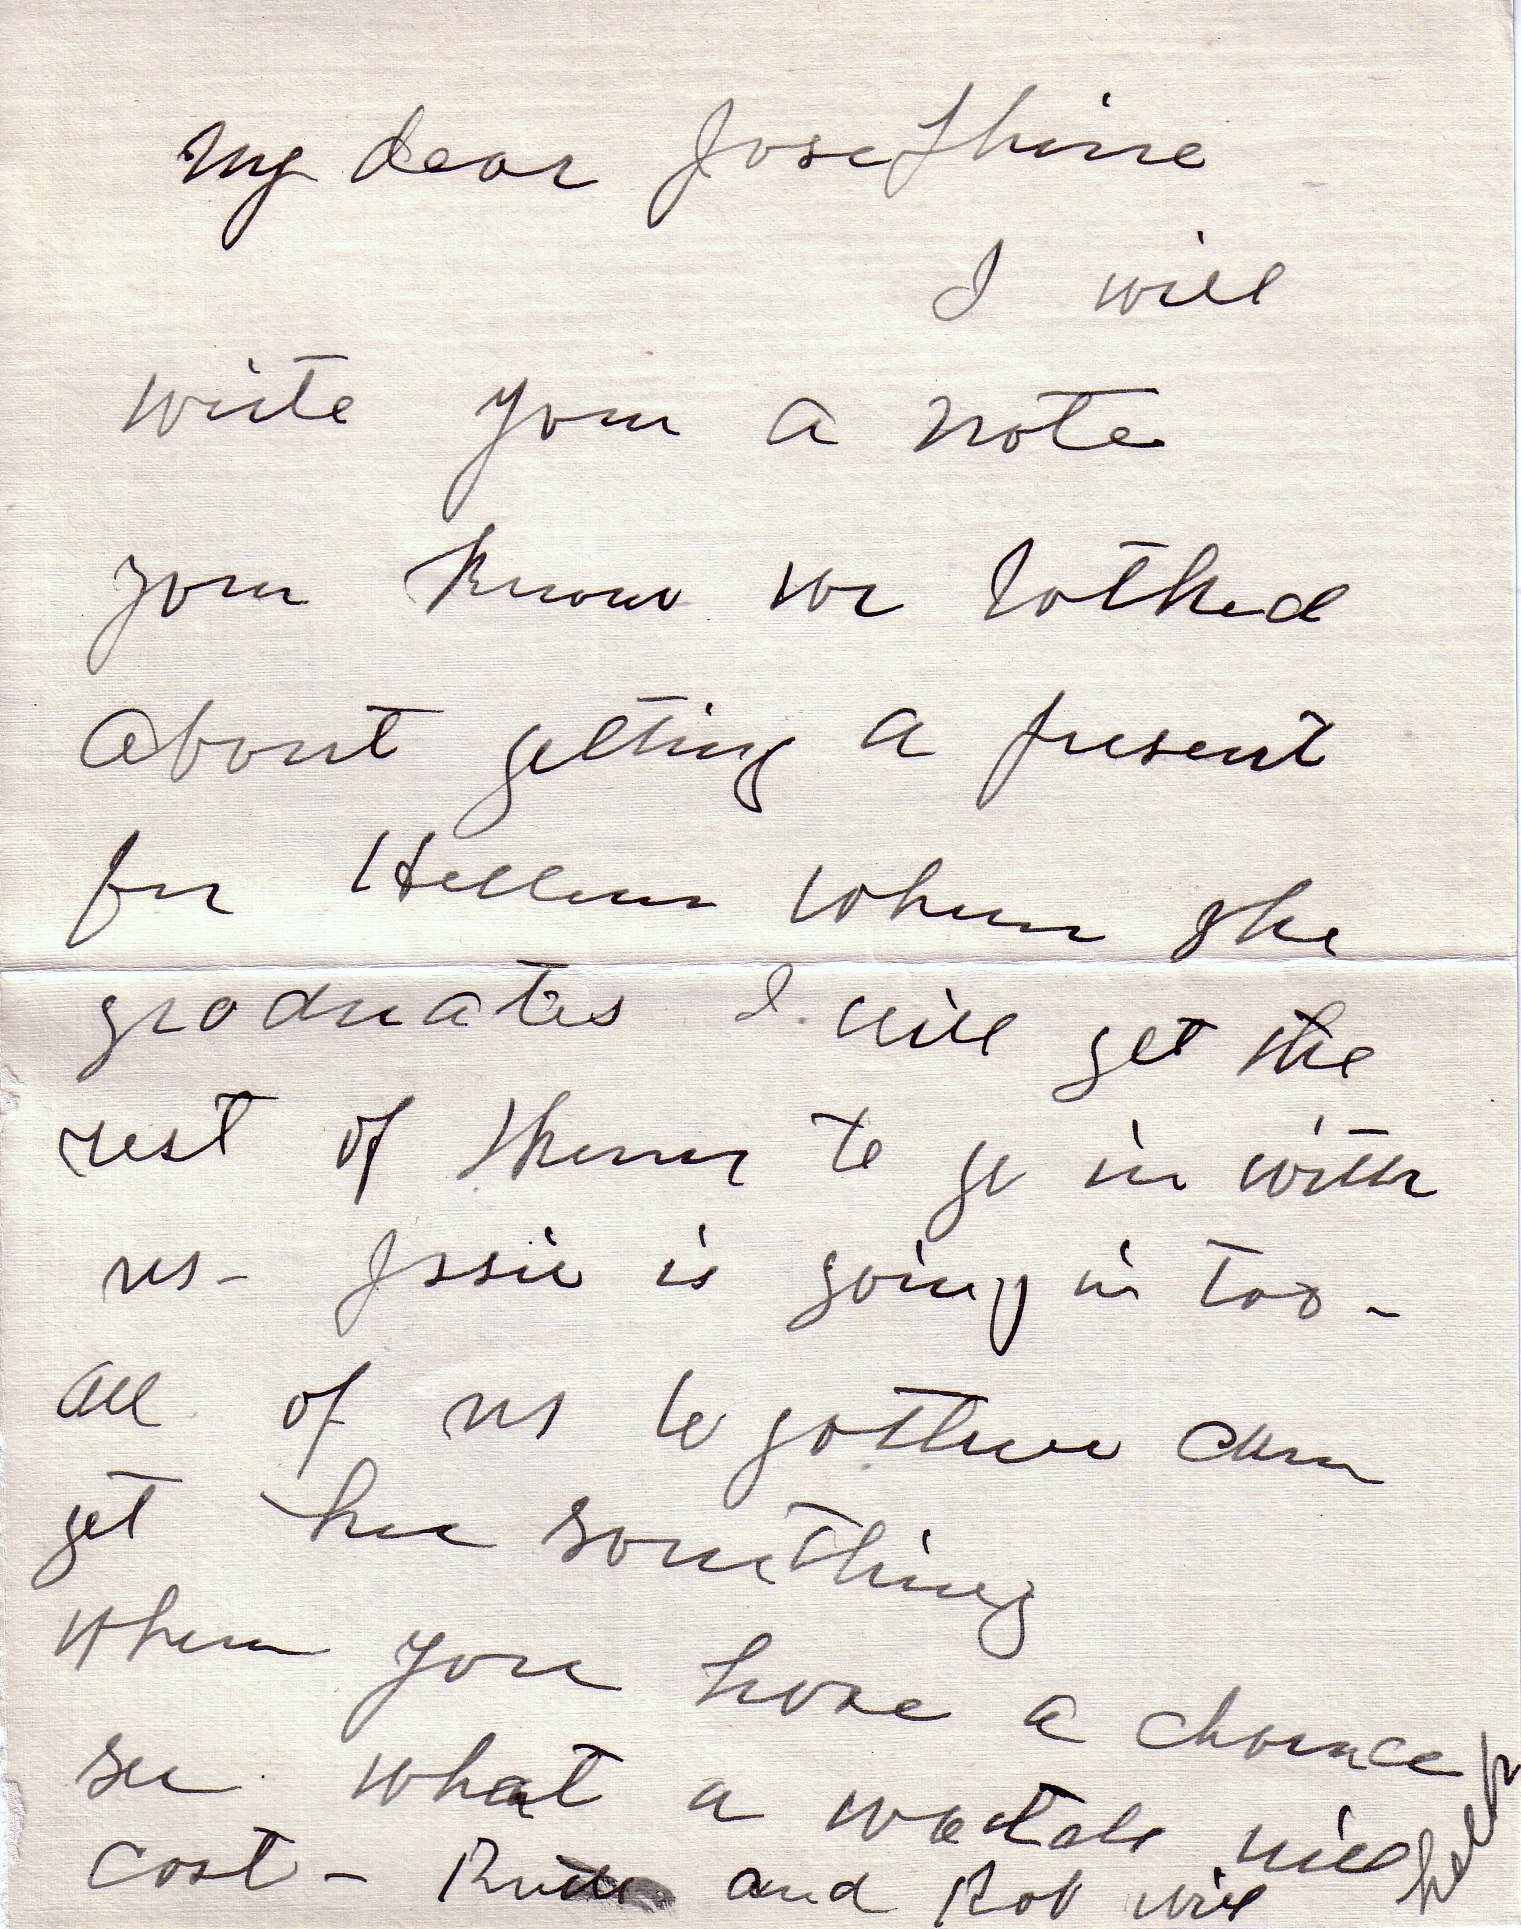 My dear Josephine
I will
write you a note
you know we talked
about getting a present
for Hellen when she
graduates I will get the
rest of them to go in with
us - Jssie is going in too -
all of us to gother can
get her something
when you have a chance
see what a watch will
cost - Ruth and Rob will help